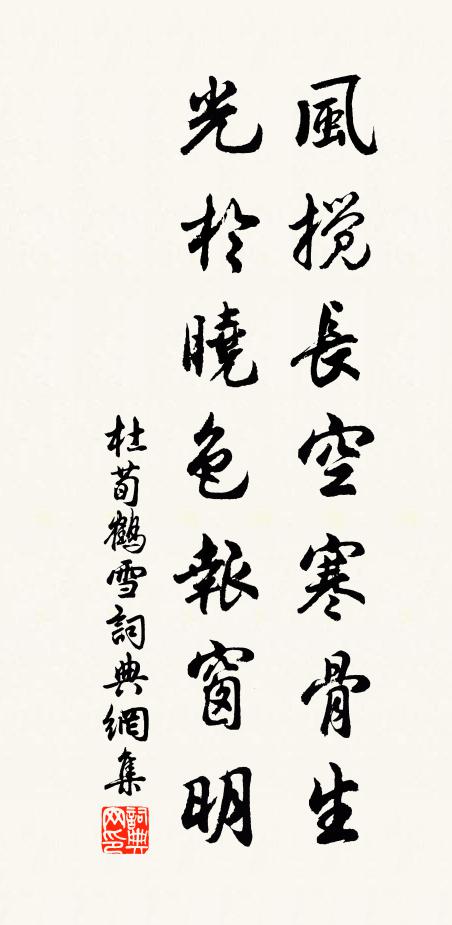 風攪長空寒骨生
光於曉色報窗明
杜荀鶴雪詞典網集
詞典
网印